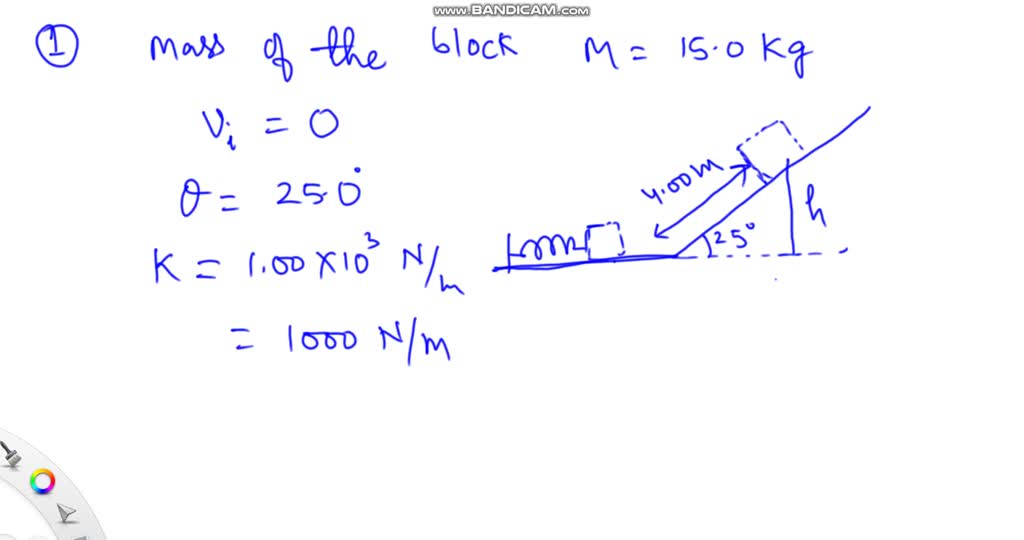 WWW.BANDICAM.COM
① Mass of the block M = 15.0 Kg
Vi = 0
θ = 25.0°
K = 1.00 × 10³ N/m
= 1000 N/m
4.00m
25°
h